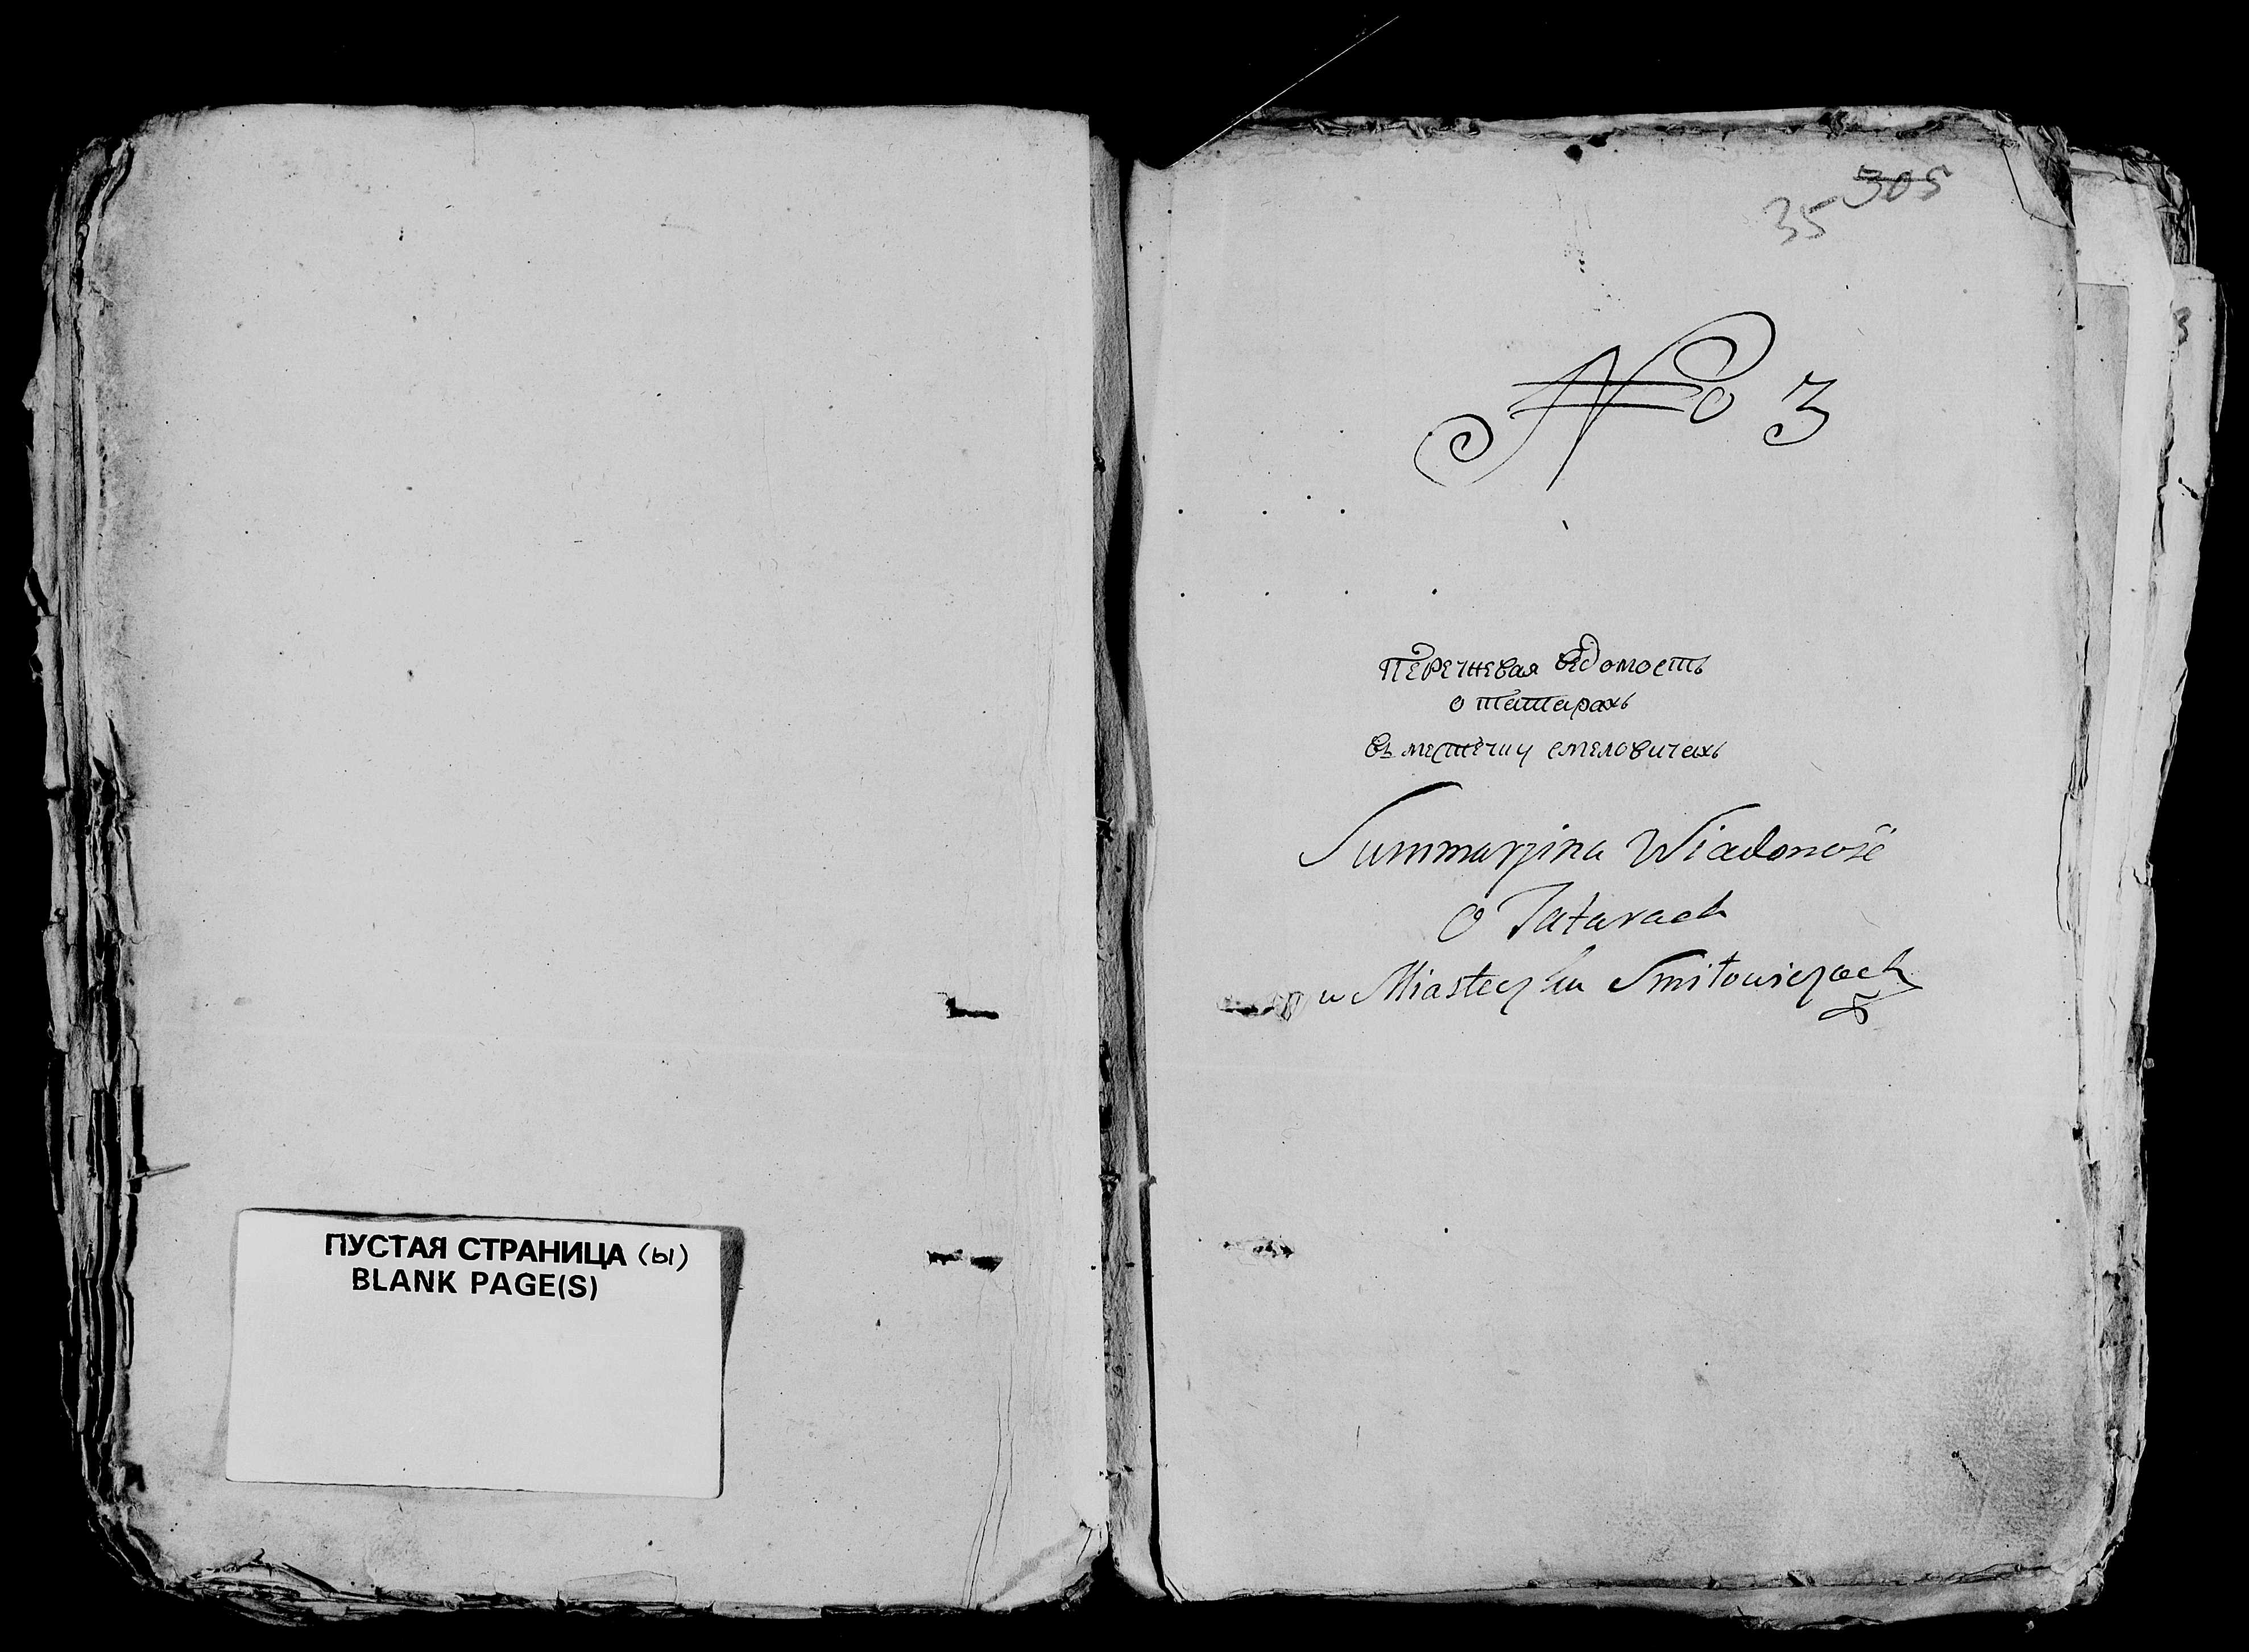 ПУСТАЯ СТРАНИЦА (ы)
BLANK PAGE(S)
305
35
No 3
Перечневая ведомость
о татарахъ
въ местечку смеловичахъ
Summaryina Wiadomość
O Tatarach
w Miasteczku Smiłowiczach